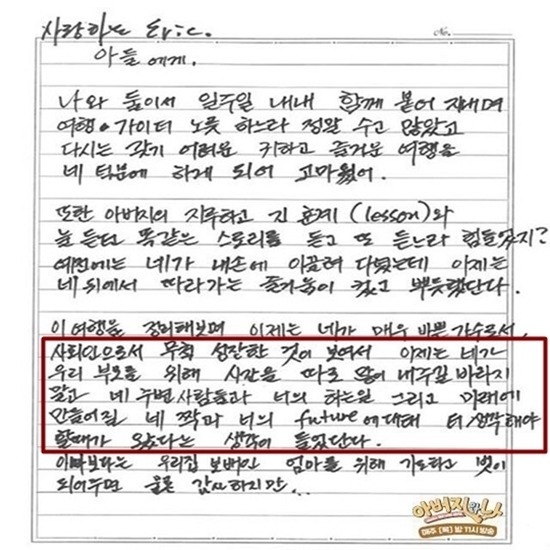 사랑하는 Eric.
아들에게.
No.
나와 둘이서 일주일 내내 함께 붙어 지내며
여행.가이더 노릇 하느라 정말 수고 많았고
다시는 갖기 어려운 귀하고 즐거운 여행을
네 덕분에 하게 되어 고마웠어.
또한 아버지의 지루하고 긴 훈계 (lesson)와
늘 듣던 똑같은 스토리를 듣고 또 듣느라 힘들었지?
예전에는 네가 내손에 이끌려 다녔는데 이제는
네 뒤에서 따라가는 즐거움이 컸고 뿌듯했단다.
이 여행을 정리해보며 이제는 네가 매우 바쁜 가수로서,
사회인으로서 무척 성장한 것이 보여서 이제는 네가
우리 부모를 위해 시간을 따로 많이 내주길 바라지
말고 네 주변사람들과 너의 하는일 그리고 미래에
만들어질 네 짝과 너의 future에 대해 더 생각해야
할때가 왔다는 생각이 들었단다.
아빠보다는 우리집 보배인 엄마를 위해 기도하고 벗이
되어주면 물론 감사하지만...
아버지와 나
매주 [목] 밤 11시 방송